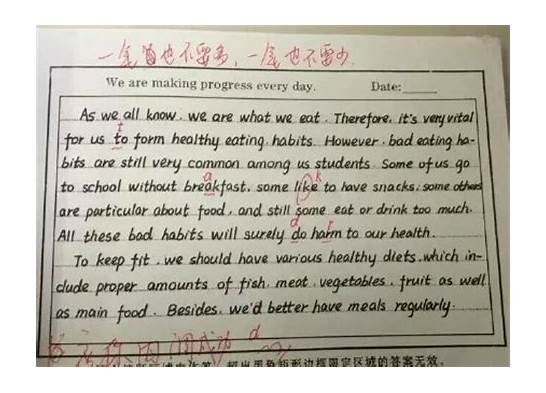 一笔也不要多，一笔也不要少
We are making progress every day. Date:
As we all know, we are what we eat. Therefore, it's very vital
t
for us to form healthy eating habits. However, bad eating ha-
bits are still very common among us students. Some of us go
a k
to school without breakfast, some like to have snacks, some others
are particular about food, and still some eat or drink too much.
d r
All these bad habits will surely do harm to our health.
To keep fit, we should have various healthy diets, which in-
clude proper amounts of fish, meat, vegetables, fruit as well
as main food. Besides, we'd better have meals regularly.
你 成功 d
超出黑色矩形边框限定区域的答案无效。